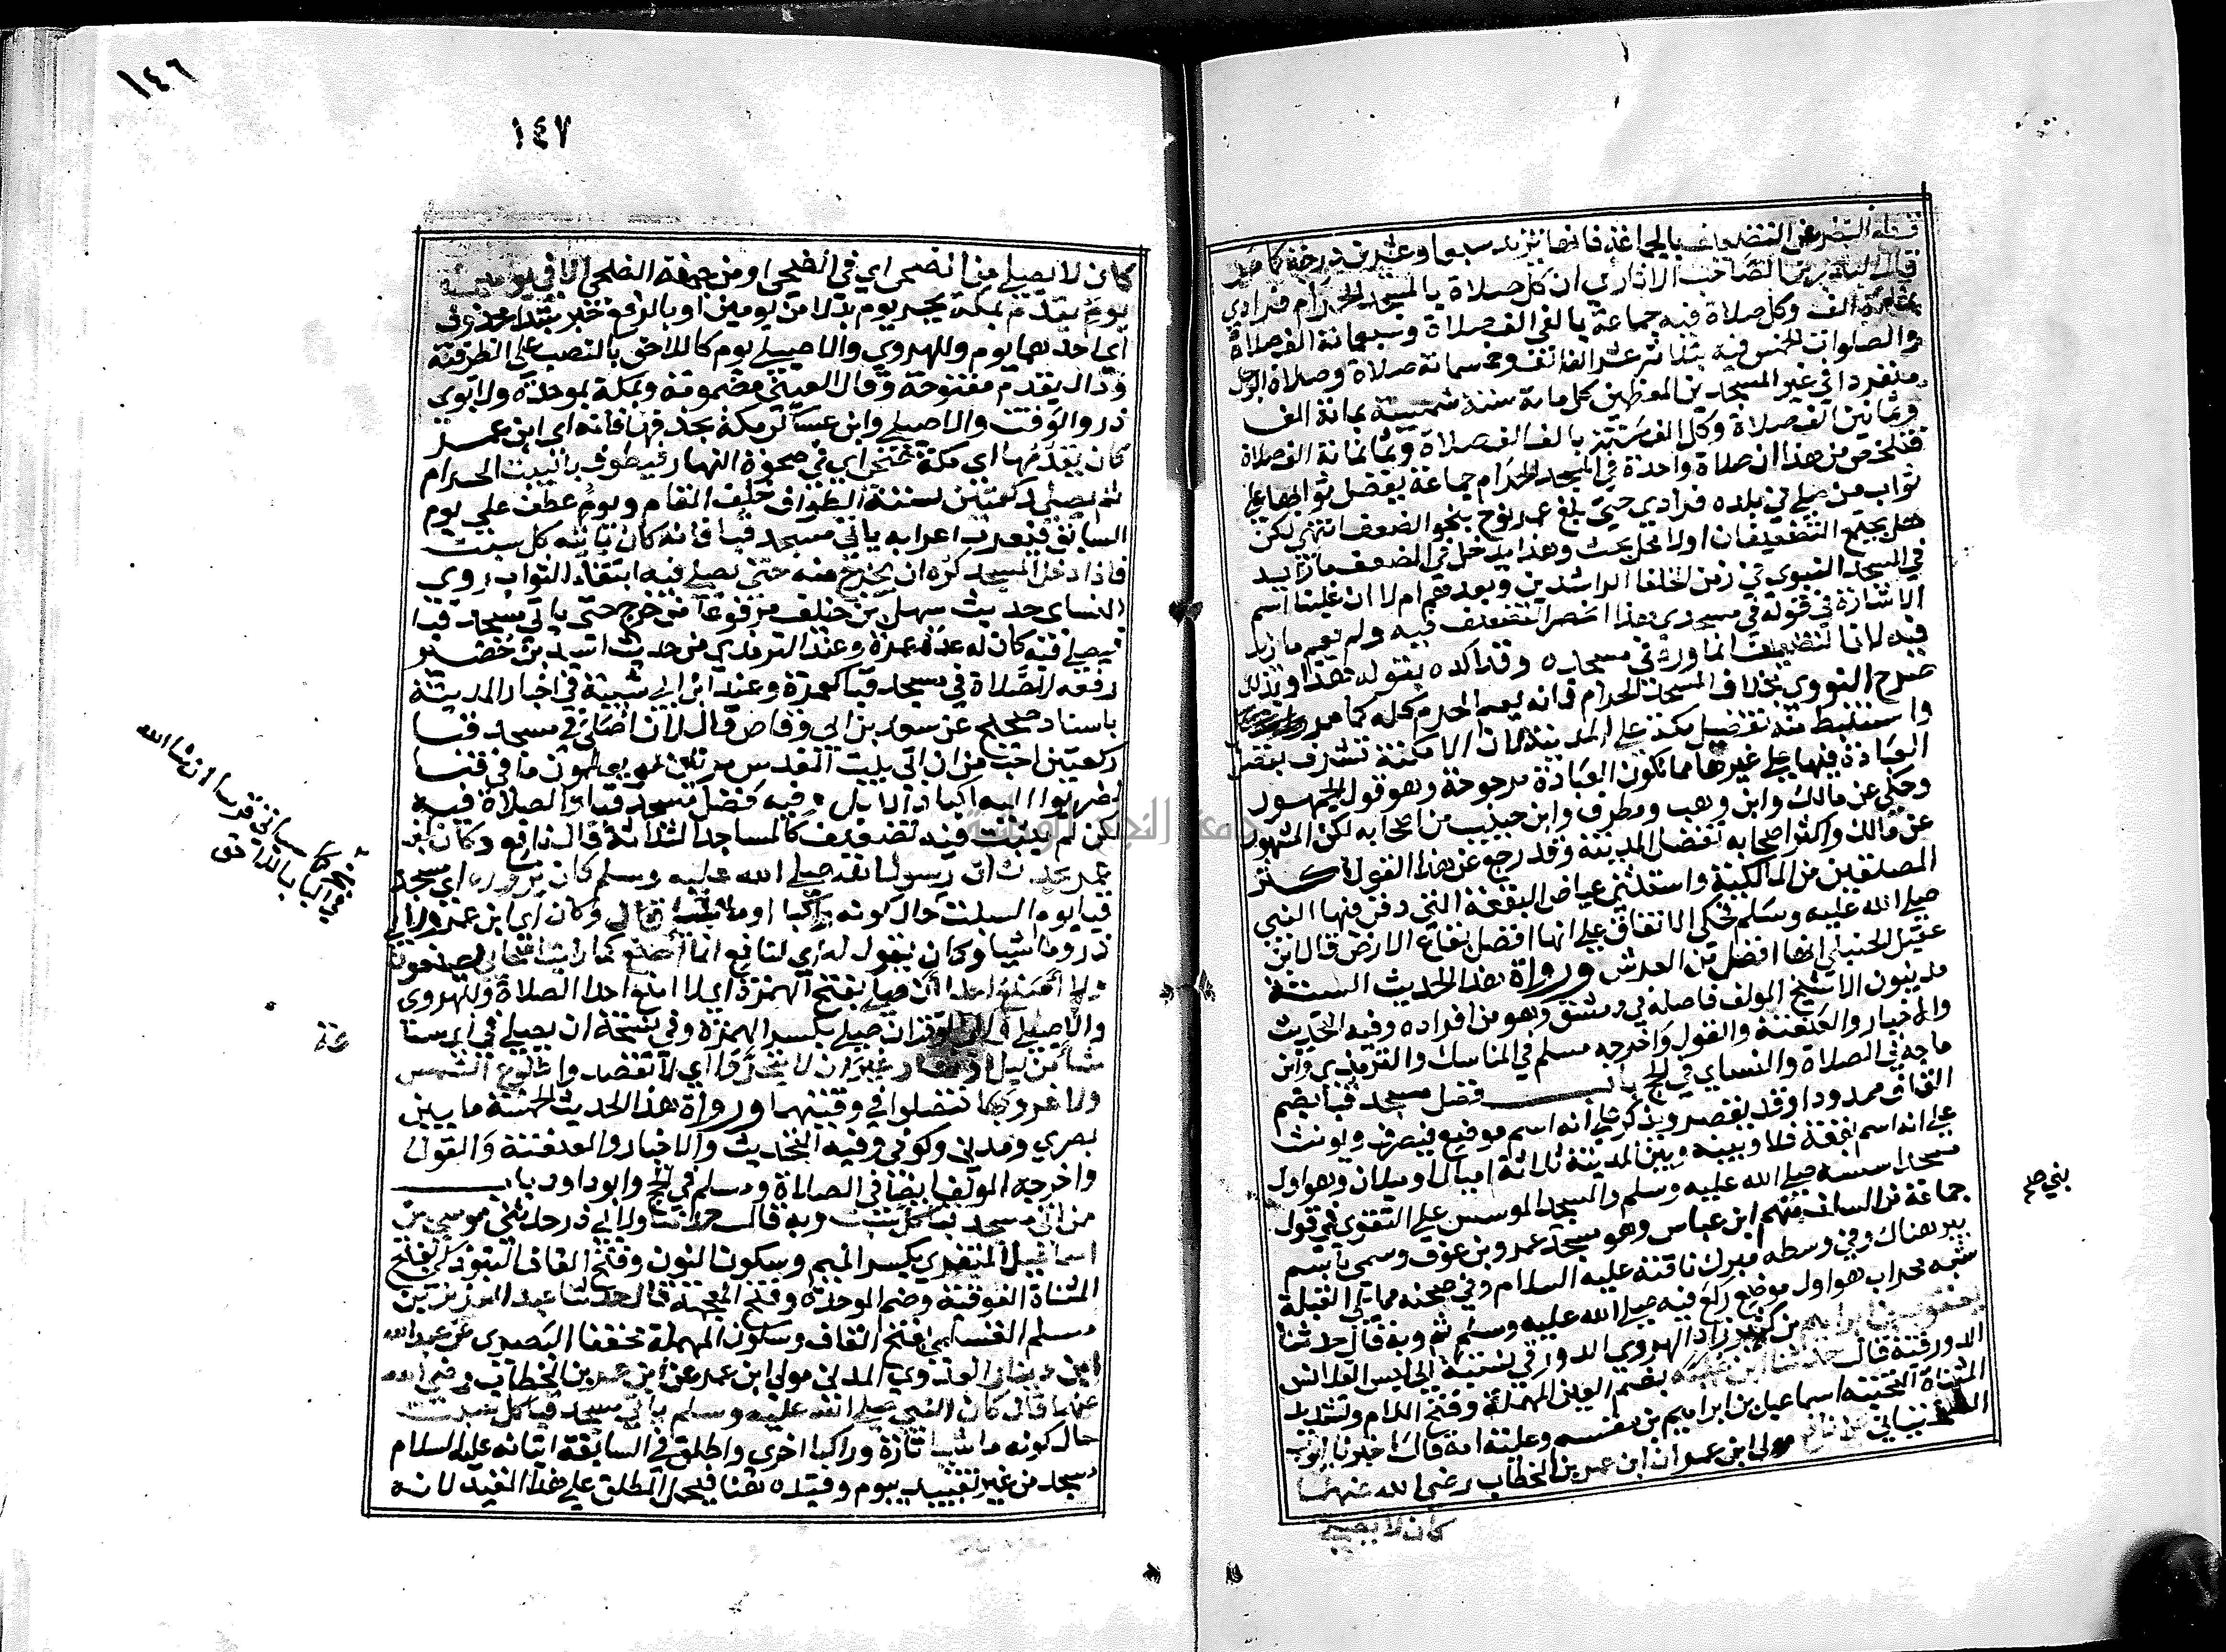 قطع النظر عن التضعيف بالجماعة فانها تزيد سبعا وعشرين درجة كما مر
قال البدر بن الصاحب الاثاري ان كل صلاة بالمسجد الحرام فرادى
بمائة الف وكل صلاة فيه جماعة بالفي الف صلاة وسبعمائة الف صلاة
والصلوات الخمس فيه بثلاثة عشر الف الف وخمسمائة صلاة وصلاة الرجل
منفردا في غير المسجدين المعظمين كل مائة سنة شمسية بمائة الف
وثمانين الف صلاة وكل الف سنة بالف الف صلاة وثمانمائة الف صلاة
فتلخص من هذا ان صلاة واحدة في المسجد الحرام جماعة يفضل ثوابها على
ثواب من صلى في بلده فرادى حتى بلغ عمر نوح بنحو الضعف انتهى لكن
هل يجتمع التضعيفان اولا محل بحث وهذا يدخل في المضعف ما زيد
في المسجد النبوي في زمن الخلفا الراشدين وبعدهم ام لا ان غلبنا اسم
الاشارة في قوله في مسجدي هذا انحصر التضعيف فيه ولم يعم ما زيد
فيه لان التضعيف انما ورد في مسجده وقد اكده بقوله هذا وبذلك
صرح النووي بخلاف المسجد الحرام فانه يعم الحرم كله كما مر
واستنبط منه تفضيل مكة على المدينة لان الامكنة تشرف بفضل
العبادة فيها على غيرها مما تكون العبادة مرجوحة وهو قول الجمهور
وحكي عن مالك وابن وهب ومطرف وابن حبيب من اصحابه لكن المشهور
عن مالك واكثر اصحابه تفضيل المدينة وقد رجع عن هذا القول اكثر
المصنفين من المالكية واستثنى عياض البقعة التي دفن فيها النبي
صلى الله عليه وسلم فحكى الاتفاق على انها افضل بقاع الارض قال ابن
عقيل الحنبلي انها افضل من العرش ورواة هذا الحديث الستة
مدنيون الا شيخ المولف فاصله من دمشق وهو من افراده وفيه التحديث
والاخبار والعنعنة والقول واخرجه مسلم في المناسك والترمذي وابن
ماجه في الصلاة والنساي في الحج باب فضل مسجد قبا بضم
القاف ممدودا وقد يقصر ويذكر على انه اسم موضع فيصرف ويونث
على انه اسم بقعة فلا وبينه وبين المدينة ثلاثة اميال او ميلان وهو اول
مسجد اسسه صلى الله عليه وسلم والمسجد الموسس على التقوى في قول
جماعة من السلف منهم ابن عباس وهو مسجد عمرو بن عوف وسمي باسم
بير هناك وفي وسطه مبرك ناقته عليه السلام وفي صحنه مما يلي القبلة
شبه محراب هو اول موضع ركع فيه صلى الله عليه وسلم ثم وبه قال حدثنا
يعقوب بن ابراهيم بن كثير زاد الهروي الدورقي نسبة الى لبس القلانس
الدورقية قال حدثنا ابن علية بضم العين المهملة وفتح اللام وتشديد
المثناة التحتية اسماعيل بن ابراهيم بن مقسم وعلية امه قال اخبرنا ايوب
السختياني عن نافع مولى ابن عمر ان ابن عمر بن الخطاب رضي الله عنهما
كان لا يصلي
بني صح
١٤٦
١٤٧
كان لا يصلي من الضحى اي في الضحى او من جهة الضحى الا في يومين
يوم يقدم بمكة بجر يوم بدلا من يومين او بالرفع خبر مبتدا محذوف
اي احدهما يوم وللهروي والاصيلي يوم كاللاحق بالنصب على الظرفية
ودال يقدم مفتوحة وقال العيني مضمومة وبمكة بموحدة ولابوي
ذر والوقت والاصيلي وابن عساكر مكة بحذفها فانه اي ابن عمر
كان يقدمها اي مكة ضحى اي في ضحوة النهار فيطوف بالبيت الحرام
ثم يصلي ركعتين لسنة الطواف خلف المقام ويوم عطف على يوم
السابق فيعرب اعرابه ياتي مسجد قبا فانه كان ياتيه كل سبت
فاذا دخل المسجد كره ان يخرج منه حتى يصلي فيه ابتغاء الثواب روى
النساي حديث سهل بن حنيف مرفوعا من خرج حتى ياتي مسجد قبا
فيصلي فيه كان له عدل عمرة وعند الترمذي من حديث اسيد بن حضير
رفعه الصلاة في مسجد قبا كعمرة وعند ابن ابي شيبة في اخبار المدينة
باسناد صحيح عن سعد بن ابي وقاص قال لان اصلي في مسجد قبا
ركعتين احب من ان اتي بيت المقدس مرتين لو يعلمون ما في قبا
لضربوا اليه اكباد الابل وفيه فضل مسجد قبا والصلاة فيه
لكن لم يثبت فيه تضعيف كالمساجد الثلاثة قال نافع وكان ابن
عمر يحدث ان رسول الله صلى الله عليه وسلم كان يزوره اي مسجد
قبا يوم السبت حال كونه راكبا وماشيا قال وكان اي ابن عمر ولابي
ذر وماشيا وكان يقول له اي لنافع انما اصنع كما رايت اصحابي يصنعون
ولا امنع احدا ان صلى بفتح الهمزة اي لا امنع احدا الصلاة وللهروي
والاصيلي وابي الوقت ان صلى بكسر الهمزة وفي نسخة ان يصلي في اي ساعة
شا من ليل او نهار غير ان لا يتحروا اي لا تقصدوا طلوع الشمس
ولا غروبها فتصلوا في وقتيهما ورواة هذا الحديث الخمسة ما بين
بصري ومدني وكوفي وفيه التحديث والاخبار والعنعنة والقول
واخرجه المولف ايضا في الصلاة ومسلم في الحج وابو داود باب
من اتى مسجد قبا كل سبت وبه قال حدثنا ولابي ذر حدثني موسى بن
اسماعيل المنقري بكسر الميم وسكون النون وفتح القاف التبوذكي بفتح
المثناة الفوقية وضم الموحدة وفتح المعجمة قال حدثنا عبد العزيز بن
مسلم القسملي بفتح القاف وسكون المهملة مخففا البصري عن عبد الله
ابن دينار العدوي المدني مولى ابن عمر عن ابن عمر بن الخطاب رضي الله
عنهما قال كان النبي صلى الله عليه وسلم ياتي مسجد قبا كل سبت
حال كونه ماشيا تارة وراكبا اخرى واطلق في السابقة اتيانه عليه السلام
مسجد من غير تقييد بيوم وقيده هنا فيحمل المطلق على هذا المقيد لانه
كما سياتي قريبا ان شا الله
في الباب اللاحق